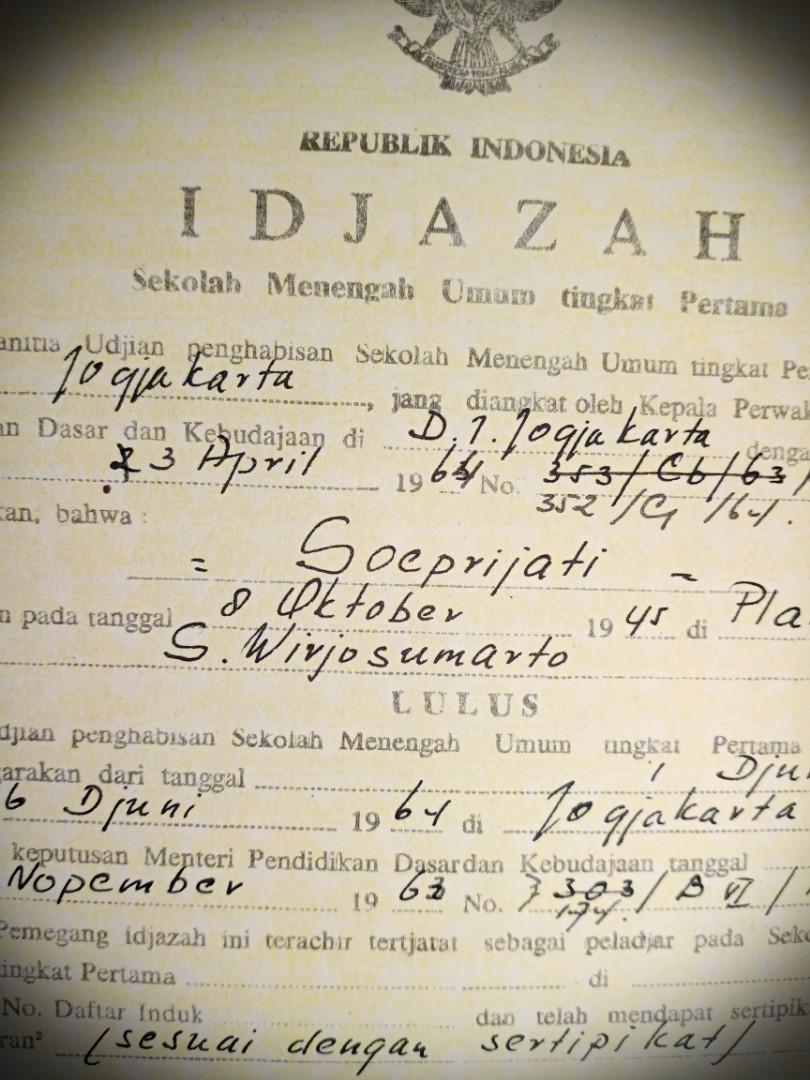 REPUBLIK INDONESIA
IDJAZAH
Sekolah Menengah Umum tingkat Pertama
anitia Udjian penghabisan Sekolah Menengah Umum tingkat Pe
Jogjakarta, jang diangkat oleh Kepala Perwak
an Dasar dan Kebudajaan di D.I. Jogjakarta denga
23 April 1964 No. 353/Cb/63/
352/C1/64.
kan, bahwa :
= Soeprijati =
n pada tanggal 8 Oktober 1945 di Pla
S. Wirjosumarto
LULUS
djian penghabisan Sekolah Menengah Umum tingkat Pertama
garakan dari tanggal 1 Dju
6 Djuni 1964 di Jogjakarta
keputusan Menteri Pendidikan Dasar dan Kebudajaan tanggal
Nopember 1963 No. 303/B VI/
174.
Pemegang idjazah ini terachir tertjatat sebagai peladjar pada Seko
ingkat Pertama di
No. Daftar Induk dan telah mendapat sertipik
ran² (sesuai dengan sertipikat)